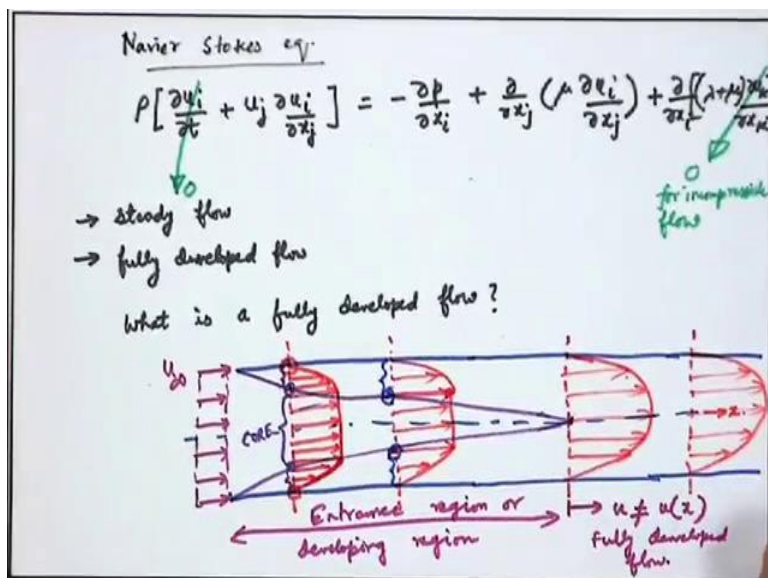 Navier Stokes eq.
ρ[∂uᵢ/∂t + uⱼ ∂uᵢ/∂xⱼ] = -∂p/∂xᵢ + ∂/∂xⱼ(μ ∂uᵢ/∂xⱼ) + ∂/∂xᵢ[(λ+μ)∂uₖ/∂xₖ
0
0
→ steady flow
for incompressible
flow
→ fully developed flow
What is a fully developed flow?
u∞
CORE
x
Entrance region or
developing region
→ u ≠ u(x)
Fully developed
flow.